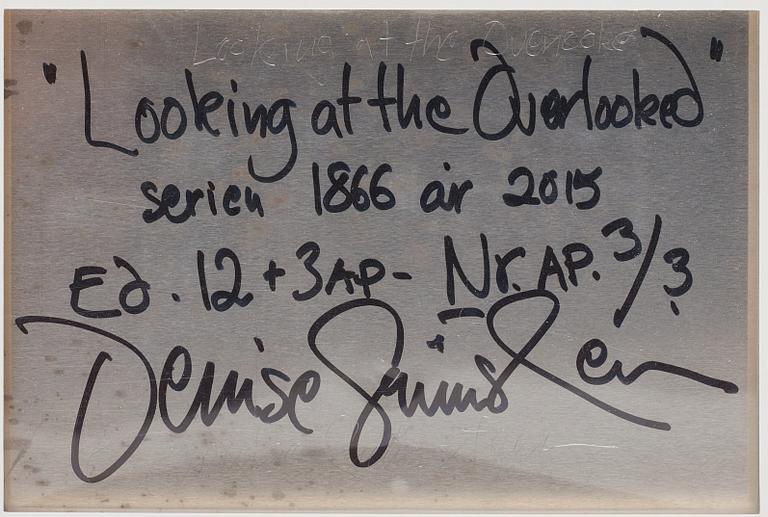 Looking at the Overlooked
"Looking at the Overlooked"
serien 1866 år 2015
Ed. 12 + 3 AP - Nr. AP. 3/3
Denise Grünstein